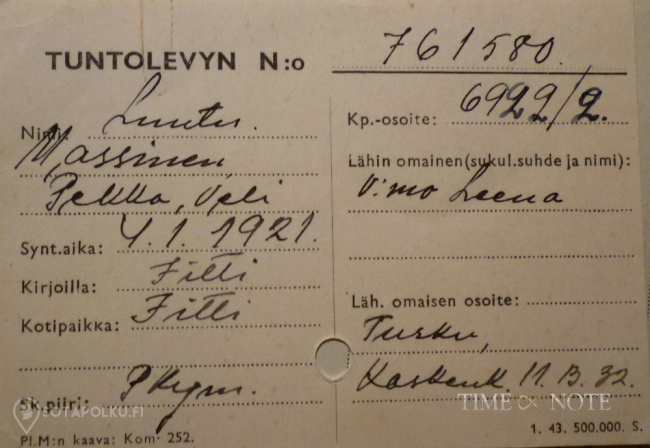 TUNTOLEVYN N:o 761580.
Nimi: Luutn.
Massinen,
Pekka, Veli
Synt.aika: 4.1. 1921.
Kirjoilla: Iitti
Kotipaikka: Iitti
Sk.piiri: PKym.
Pl.M:n kaava: Kom 252.
Kp.-osoite: 6922/2.
Lähin omainen (sukul.suhde ja nimi):
V:mo Leena
Läh. omaisen osoite:
Turku,
Kaskenk. 11.B.32.
1. 43. 500.000. S.
SOTAPOLKU.FI
TIME & NOTE